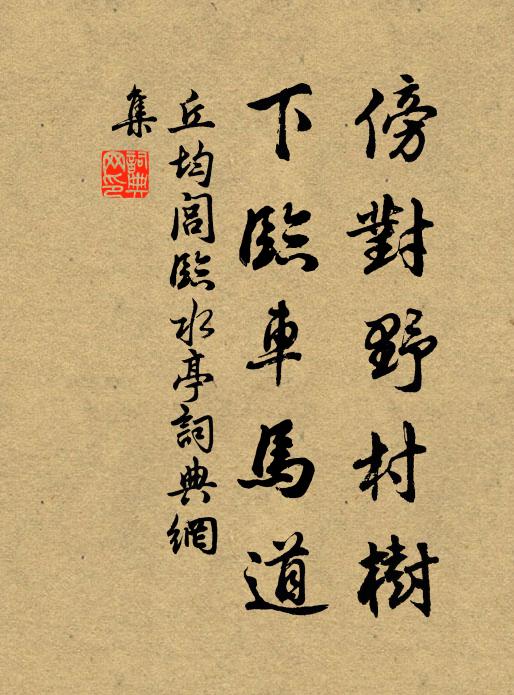 傍對野村樹
下臨車馬道
丘均閭臨水亭詞典網
集
詞典網印